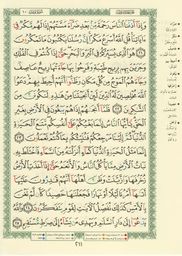 وَإِذَآ أَذَقْنَا ٱلنَّاسَ رَحْمَةً مِّنۢ بَعْدِ ضَرَّآءَ مَسَّتْهُمْ إِذَا لَهُم مَّكْرٌ فِىٓ
ءَايَاتِنَا ۚ قُلِ ٱللَّهُ أَسْرَعُ مَكْرًا ۚ إِنَّ رُسُلَنَا يَكْتُبُونَ مَا تَمْكُرُونَ ٢١
هُوَ ٱلَّذِى يُسَيِّرُكُمْ فِى ٱلْبَرِّ وَٱلْبَحْرِ ۖ حَتَّىٰٓ إِذَا كُنتُمْ فِى ٱلْفُلْكِ
وَجَرَيْنَ بِهِم بِرِيحٍ طَيِّبَةٍ وَفَرِحُوا۟ بِهَا جَآءَتْهَا رِيحٌ عَاصِفٌ
وَجَآءَهُمُ ٱلْمَوْجُ مِن كُلِّ مَكَانٍ وَظَنُّوٓا۟ أَنَّهُمْ أُحِيطَ بِهِمْ ۙ دَعَوُا۟
ٱللَّهَ مُخْلِصِينَ لَهُ ٱلدِّينَ لَئِنْ أَنجَيْتَنَا مِنْ هَٰذِهِۦ لَنَكُونَنَّ مِنَ
ٱلشَّٰكِرِينَ ٢٢ فَلَمَّآ أَنجَىٰهُمْ إِذَا هُمْ يَبْغُونَ فِى ٱلْأَرْضِ بِغَيْرِ
ٱلْحَقِّ ۗ يَٰٓأَيُّهَا ٱلنَّاسُ إِنَّمَا بَغْيُكُمْ عَلَىٰٓ أَنفُسِكُم ۖ مَّتَٰعَ ٱلْحَيَوٰةِ
ٱلدُّنْيَا ۖ ثُمَّ إِلَيْنَا مَرْجِعُكُمْ فَنُنَبِّئُكُم بِمَا كُنتُمْ تَعْمَلُونَ ٢٣
إِنَّمَا مَثَلُ ٱلْحَيَوٰةِ ٱلدُّنْيَا كَمَآءٍ أَنزَلْنَٰهُ مِنَ ٱلسَّمَآءِ فَٱخْتَلَطَ بِهِۦ
نَبَاتُ ٱلْأَرْضِ مِمَّا يَأْكُلُ ٱلنَّاسُ وَٱلْأَنْعَٰمُ حَتَّىٰٓ إِذَآ أَخَذَتِ ٱلْأَرْضُ
زُخْرُفَهَا وَٱزَّيَّنَتْ وَظَنَّ أَهْلُهَآ أَنَّهُمْ قَٰدِرُونَ عَلَيْهَآ
أَتَىٰهَآ أَمْرُنَا لَيْلًا أَوْ نَهَارًا فَجَعَلْنَٰهَا حَصِيدًا كَأَن لَّمْ تَغْنَ
بِٱلْأَمْسِ ۚ كَذَٰلِكَ نُفَصِّلُ ٱلْءَايَٰتِ لِقَوْمٍ يَتَفَكَّرُونَ ٢٤ وَٱللَّهُ
يَدْعُوٓا۟ إِلَىٰ دَارِ ٱلسَّلَٰمِ وَيَهْدِى مَن يَشَآءُ إِلَىٰ صِرَٰطٍ مُّسْتَقِيمٍ ٢٥
٢١١